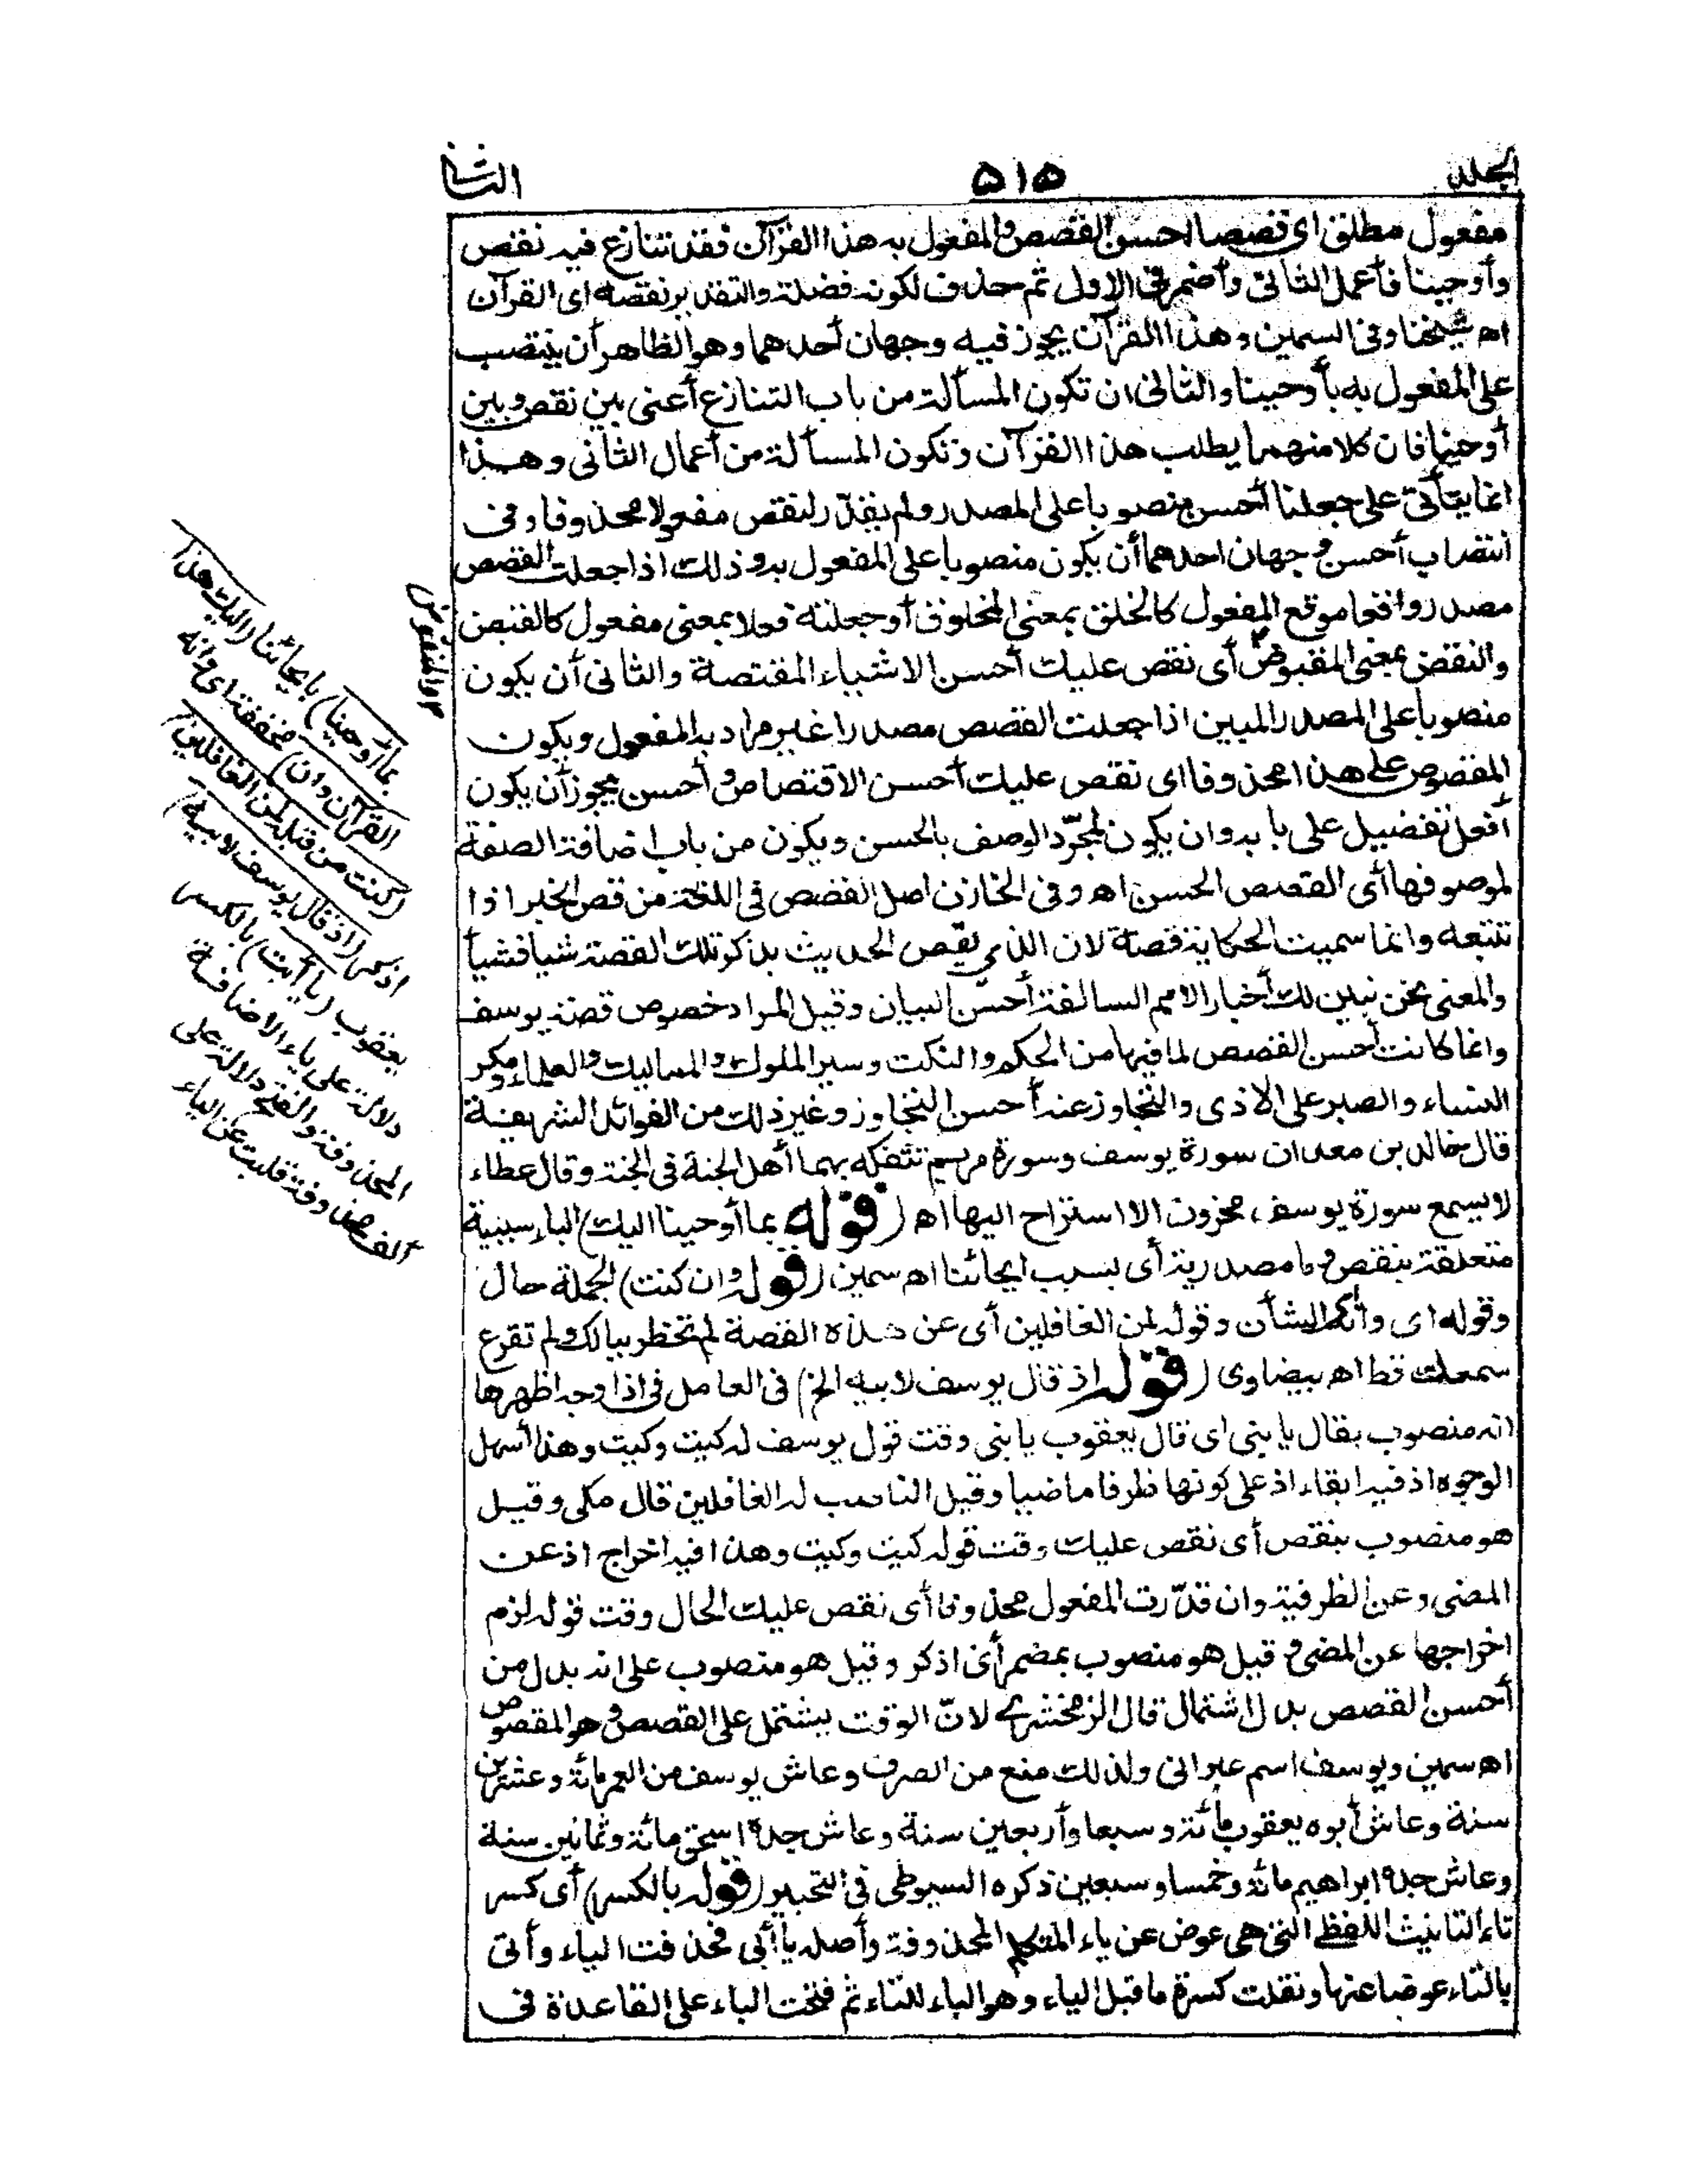 الجلد ۵۱۵ الثانى
مفعول مطلق اى قصصا احسن القصص والمفعول به هذا القرآن فقد تنازع فيه نقص
وأوحينا فأعمل الثانى وأضمر فى الاول ثم حذف لكونه فضلة والتقدير نقصه اى القرآن
اه شيخنا وفى السمين وهذا القرآن يجوز فيه وجهان أحدهما وهو الظاهر أن ينتصب
على المفعول به بأوحينا والثانى ان تكون المسألة من باب التنازع أعنى بين نقص وبين
أوحينا فان كلا منهما يطلب هذا القرآن وتكون المسألة من أعمال الثانى وهذا
انما يتأتى على جعلنا أحسن منصوبا على المصدر ولم نقدر لنقص مفعولا محذوفا وفى
انتصاب أحسن وجهان احدهما أن يكون منصوبا على المفعول به وذلك اذا جعلت القصص
مصدر واقعا موقع المفعول كالخلق بمعنى المخلوق أو جعلته فعلا بمعنى مفعول كالقبض
والنقض بمعنى المقبوض أى نقص عليك أحسن الاشياء المقتصة والثانى أن يكون
منصوبا على المصدر المبين اذا جعلت القصص مصدرا غير مراد به المفعول ويكون
المقصوص على هذا محذوفا اى نقص عليك أحسن الاقتصاص وأحسن يجوز أن يكون
أفعل تفضيل على بابه وان يكون لمجرّد الوصف بالحسن ويكون من باب اضافة الصفة
لموصوفها أى القصص الحسن اه وفى الخازن اصل القصص فى اللغة من قص الخبر اذا
تتبعه وانما سميت الحكاية قصة لان الذى يقص الحديث يذكر تلك القصة شيأ فشيأ
والمعنى نحن نبين لك أخبار الامم السالفة أحسن البيان وقيل المراد خصوص قصة يوسف
وانما كانت أحسن القصص لما فيها من الحكم والنكت وسير الملوك والمماليك والعلماء ومكر
النساء والصبر على الاذى والتجاوز عنه أحسن التجاوز وغير ذلك من الفوائد الشريفة
قال خالد بن معدان سورة يوسف وسورة مريم تتفكه بهما أهل الجنة فى الجنة وقال عطاء
لا يسمع سورة يوسف محزون الا استراح اليها اه (قوله بما أوحينا اليك) الباء سببية
متعلقة بنقص وما مصدرية أى بسبب ايحائنا اه سمين (قوله وان كنت) الجملة حال
وقوله اى وانه الشأن وقوله لمن الغافلين أى عن هذه القصة لم تخطر ببالك ولم تقرع
سمعك قط اه بيضاوى (قوله اذ قال يوسف لابيه الخ) فى العامل فى اذ اوجه اظهرها
انه منصوب بقال يا بنى اى قال يعقوب يا بنى وقت قول يوسف له كيت وكيت وهذا أسهل
الوجوه اذ فيه ابقاء اذ على كونها ظرفا ماضيا وقيل الناصب له الغافلين قال مكى وقيل
هو منصوب بنقص أى نقص عليك وقت قوله كيت وكيت وهذا فيه اخراج اذ عن
المضى وعن الظرفية وان قدّرت المفعول محذوفا أى نقص عليك الحال وقت قوله لزم
اخراجها عن المضى وقيل هو منصوب بمضمر أى اذكر وقيل هو منصوب على انه بدل من
أحسن القصص بدل اشتمال قال الزمخشرى لانّ الوقت يشتمل على القصص وهو المقصوص
اه سمين ويوسف اسم عبرانى ولذلك منع من الصرف وعاش يوسف من العمر مائة وعشرين
سنة وعاش أبوه يعقوب مائة وسبعا وأربعين سنة وعاش جده اسحق مائة وثمانين سنة
وعاش جده ابراهيم مائة وخمسا وسبعين ذكره السيوطى فى التحبير (قوله بالكسر) أى كسر
تاء التأنيث اللفظى التى هى عوض عن ياء المتكلم المحذوفة وأصله يا أبى فحذفت الياء وأتى
بالتاء عوضا عنها ونقلت كسرة ما قبل الياء وهو الباء للتاء ثم فتحت الباء على القاعدة فى
والمنقوض
بما أوحينا) بايحائنا (اليك هذا
القرآن وان) مخففة اى وانه
(كنت من قبله لمن الغافلين)
اذكر (اذ قال يوسف لابيه)
يعقوب (يا أبت) بالكسر
دلالة على ياء الاضافة
المحذوفة والفتح دلالة على
ألف محذوفة قلبت عن الياء